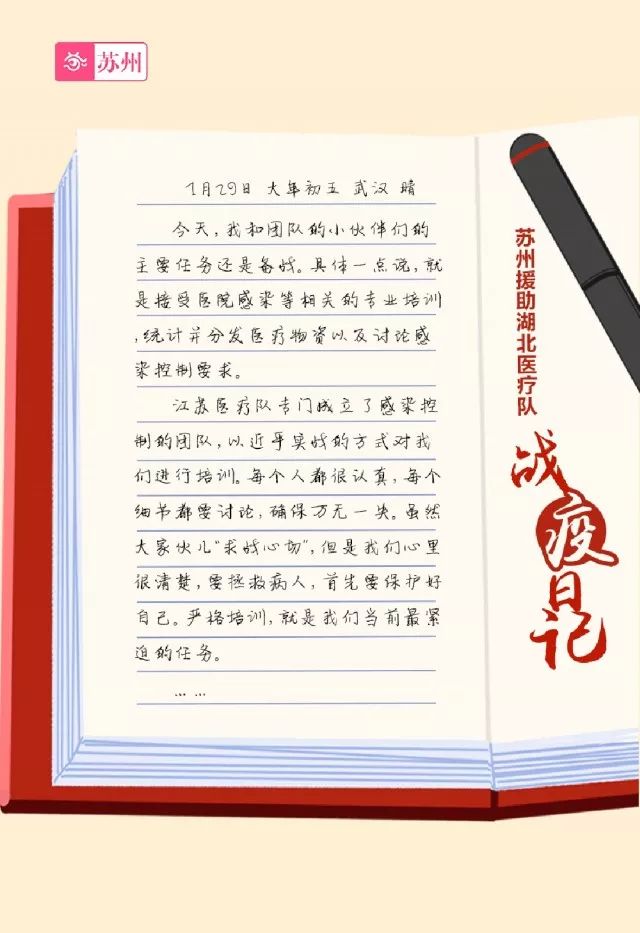 苏州
1月29日 大年初五 武汉 晴
今天，我和团队的小伙伴们的
主要任务还是备战。具体一点说，就
是接受医院感染等相关的专业培训
，统计并分发医疗物资以及讨论感
染控制要求。
江苏医疗队专门成立了感染控
制的团队，以近乎实战的方式对我
们进行培训。每个人都很认真，每个
细节都要讨论，确保万无一失。虽然
大家伙儿“求战心切”，但是我们心里
很清楚，要拯救病人，首先要保护好
自己。严格培训，就是我们当前最紧
迫的任务。
……
苏州援助湖北医疗队
战疫日记